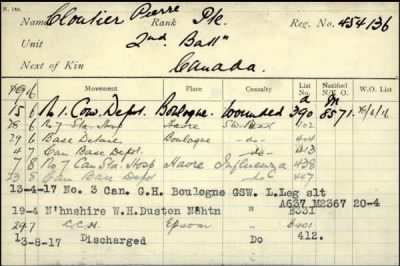 R. 120.
Name Cloutier Pierre Rank Pte. Reg. No. 454136
Unit 2nd. Battn
Next of Kin Canada.
Date Movement Place Casualty List Notified N/K. O. W.O. List
15 6 No 1. Con. Depot. Boulogne Wounded 390 8571. 18/6/16
18 6 No 7 Sta. Hosp Havre S.W. 402
29 6 Base Details Boulogne -do- 404
4 7 Can Base Depot -do- 413
7 8 No 7 Can Sta. Hosp Havre Influenza 438
23 8 Can Base Depot do 447
13-4-17 No. 3 Can. G.H. Boulogne GSW. L.Leg slt
A637 M2367 20-4
19-4 N'hnshire W.H.Duston N&htn " B031
29.7 C.C.H. Epsom "
3-8-17 Discharged Do 412.